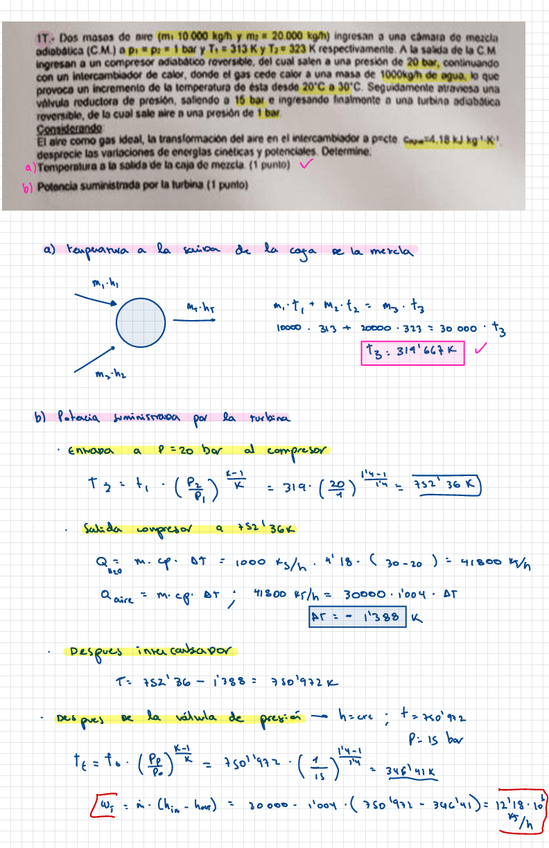 1T.- Dos masas de aire (m₁ 10.000 kg/h y m₂ = 20.000 kg/h) ingresan a una cámara de mezcla
adiabática (C.M.) a p₁ = p₂ = 1 bar y T₁ = 313 K y T₂ = 323 K respectivamente. A la salida de la C.M
ingresan a un compresor adiabático reversible, del cual salen a una presión de 20 bar, continuando
con un intercambiador de calor, donde el gas cede calor a una masa de 1000kg/h de agua, lo que
provoca un incremento de la temperatura de ésta desde 20°C a 30°C. Seguidamente atraviesa una
válvula reductora de presión, saliendo a 15 bar e ingresando finalmente a una turbina adiabática
reversible, de la cual sale aire a una presión de 1 bar.
Considerando
El aire como gas ideal, la transformación del aire en el intercambiador a p=cte cₐgᵤₐ=4,18 kJ kg⁻¹·K⁻¹
desprecie las variaciones de energías cinéticas y potenciales. Determine:
a) Temperatura a la salida de la caja de mezcla. (1 punto) ✓
b) Potencia suministrada por la turbina (1 punto)
a) temperatura a la salida de la caja de la mezcla
m₁·h₁
m₂·h₂
m₁·t₁ + m₂·t₂ = m₃·t₃
10000 · 313 + 20000 · 323 = 30 000 · t₃
t₃ = 319'667 K ✓
b) Potencia suministrada por la turbina
· Entrada a P=20 bar al compresor
T₂ = t₁ · (P₂/P₁)^(K-1/K) = 319 · (20/1)^(1'4-1/1'4) = 752'36 K
· Salida compresor a 752'36K
Q H₂O = m · cp · ΔT = 1000 kg/h · 4'18 · (30-20) = 41800 kJ/h
Q aire = m·cp· ΔT ; 41800 kJ/h = 30000 · 1'004 · ΔT
ΔT = - 1'388 K
· Despues intercambiador
T = 752'36 - 1'388 = 750'972 K
· Despues de la válvula de presión → h=cte ; t = 750'972
P = 15 bar
= 750'972 · (1/15)^(1'4-1/1'4) = 346'41K
= ṁ · (h in - h out) = 30000 · 1'004 · (750'972 - 346'41) = 12'18·10⁶ kJ/h